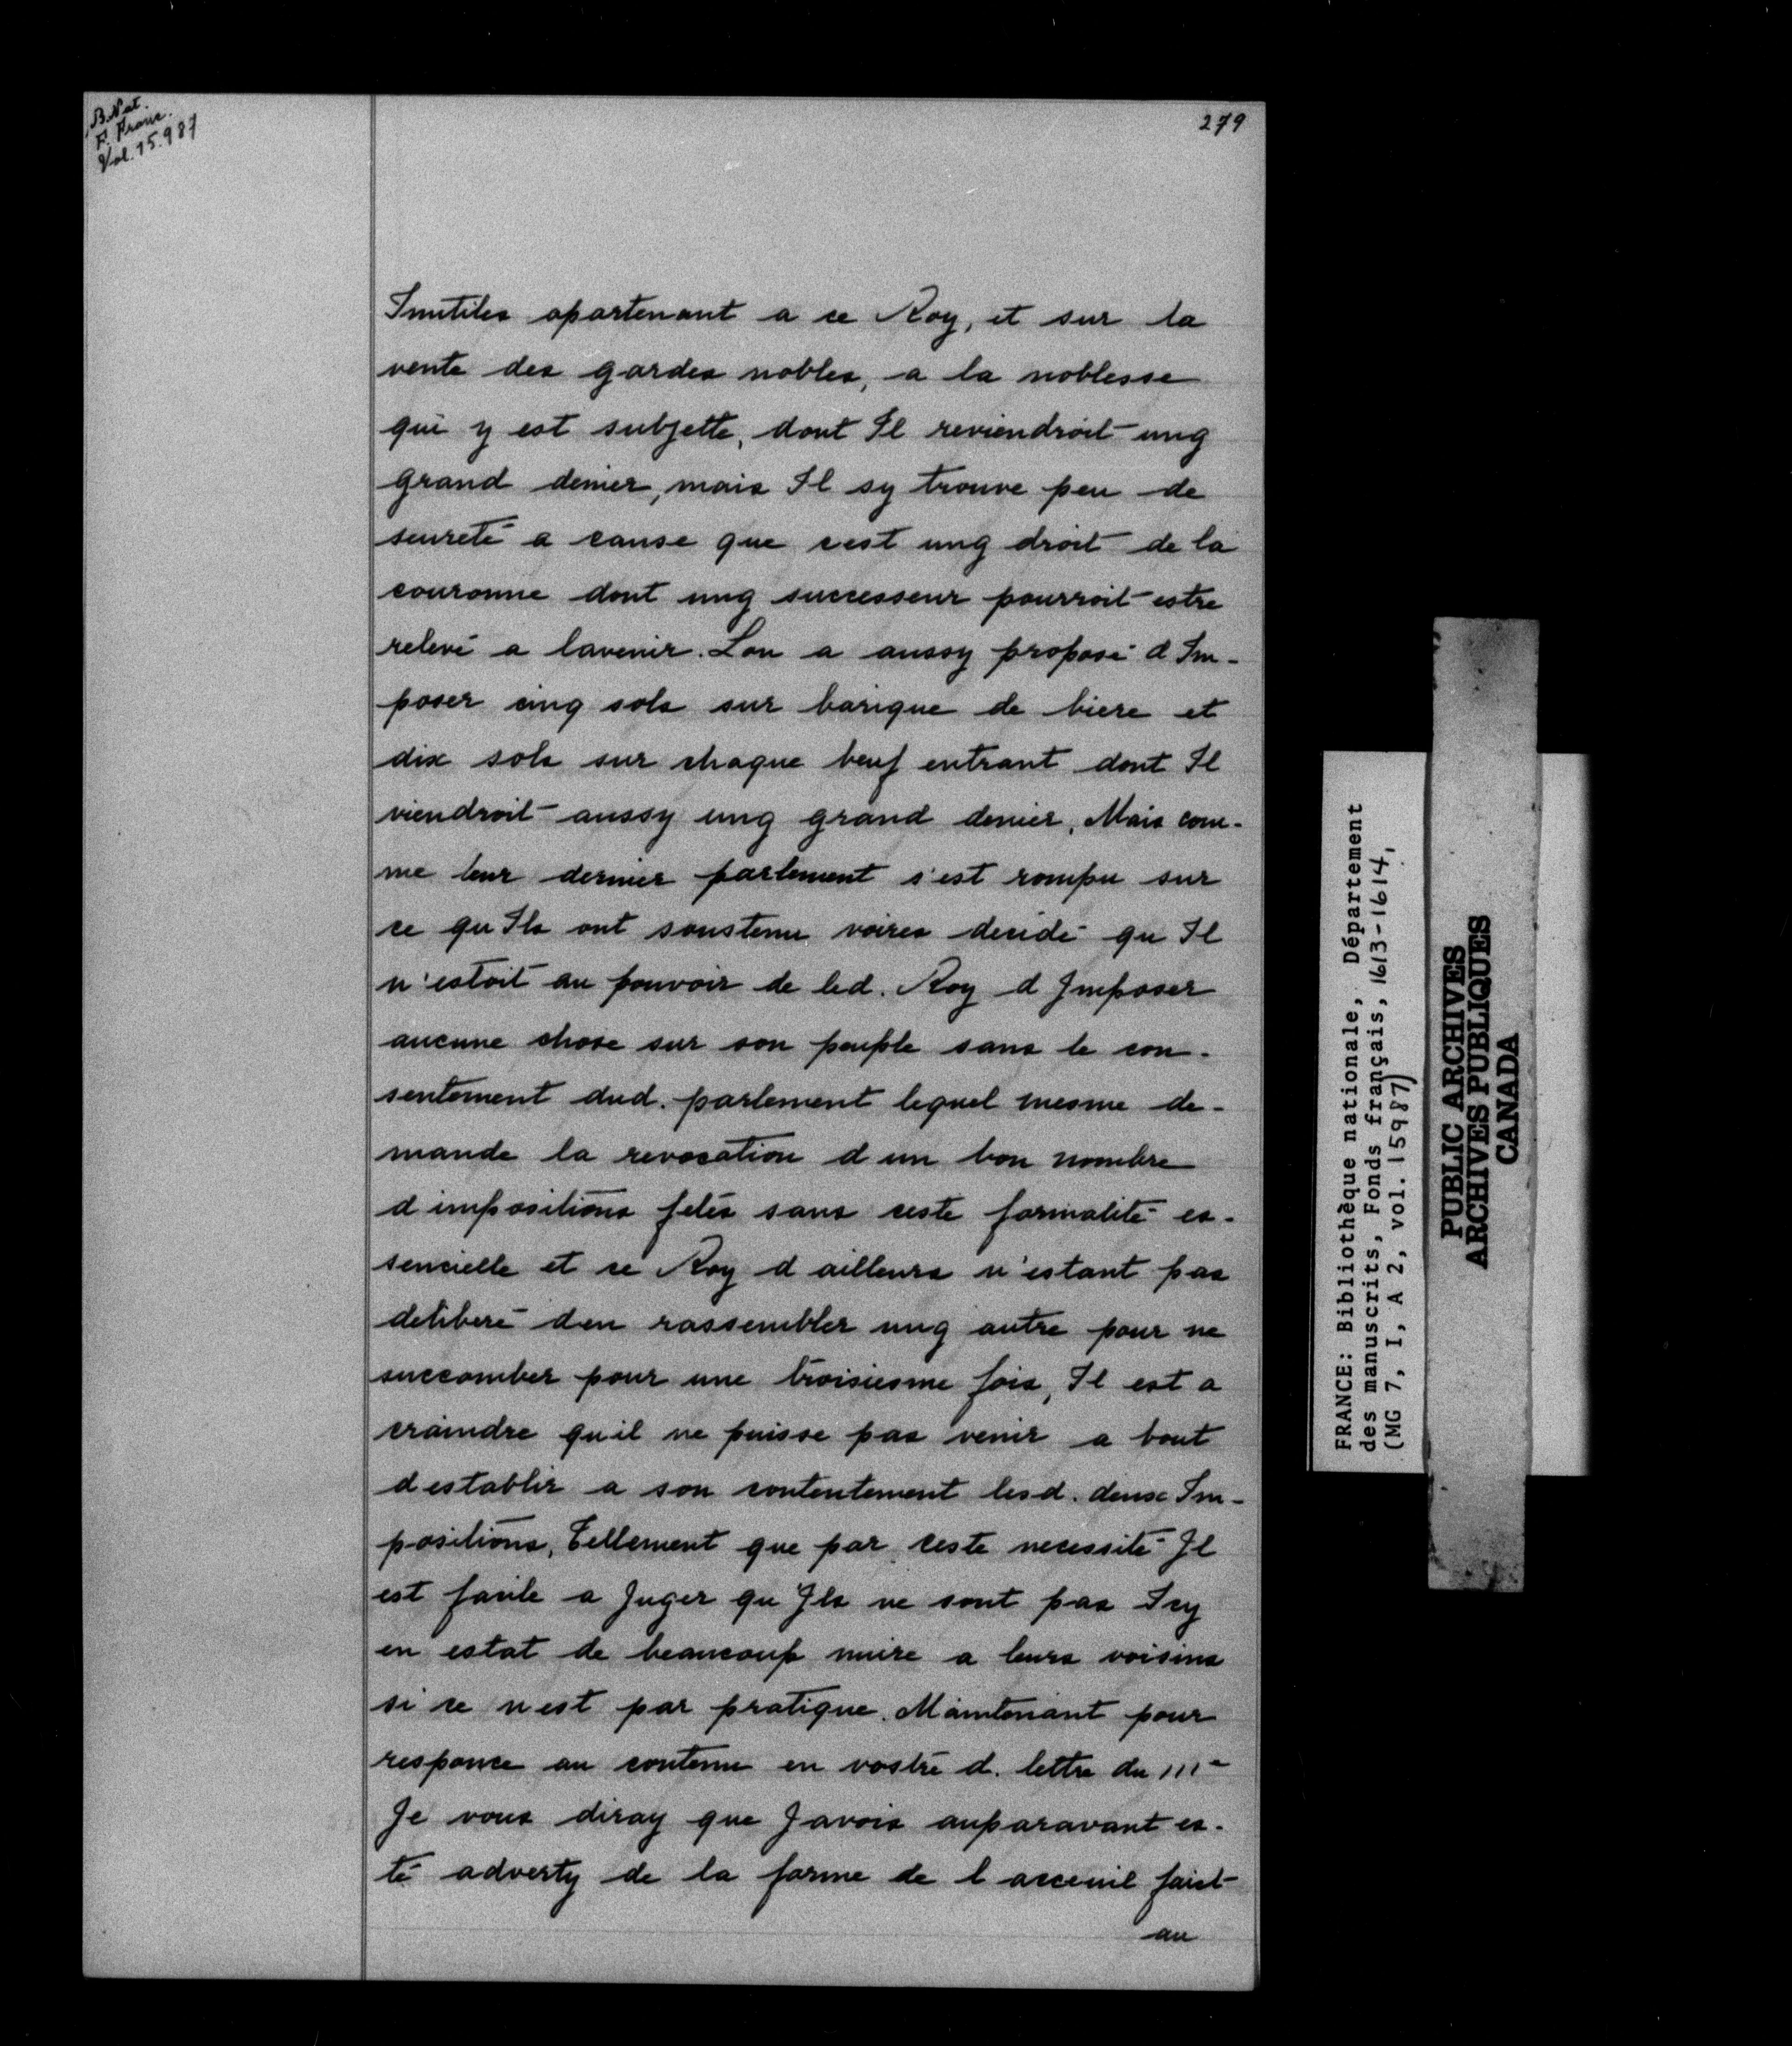 B. Nat.
F. Franc.
Vol. 15.987
279
Inutiles apartenant a ce Roy, et sur la
vente des gardes nobles, a la noblesse
qui y est subjette, dont Il reviendroit ung
grand denier, mais Il sy trouve peu de
seureté a cause que cest ung droit de la
couronne dont ung successeur pourroit estre
relevé a lavenir. Lon a aussy proposé d Im-
poser cinq sols sur barique de biere et
dix sols sur chaque beuf entrant dont Il
viendroit aussy ung grand denier, Mais com-
me leur dernier parlement s'est rompu sur
ce qu Ils ont soustenu voires decidé qu Il
n'estoit au pouvoir de led. Roy d Imposer
aucune chose sur son peuple sans le con-
sentement dud. parlement lequel mesme de-
mande la revocation d un bon nombre
d impositions fetes sans ceste formalité es-
sencielle et ce Roy d ailleurs n'estant pas
deliberé den rassembler ung autre pour ne
succomber pour une troisiesme fois, Il est a
craindre quil ne puisse pas venir a bout
d establir a son contentement lesd. deux Im-
positions, Tellement que par ceste necessité Il
est facile a Juger qu Ils ne sont pas Icy
en estat de beaucoup nuire a leurs voisins
si ce n est par pratique. Maintenant pour
responce au contenu en vostre d. lettre du IIIe
Je vous diray que Javois auparavant es-
té adverty de la forme de l acceuil faict
au
FRANCE: Bibliothèque nationale, Département
des manuscrits, Fonds français, 1613-1614,
(MG 7, I, A 2, vol. 15987)
PUBLIC ARCHIVES
ARCHIVES PUBLIQUES
CANADA